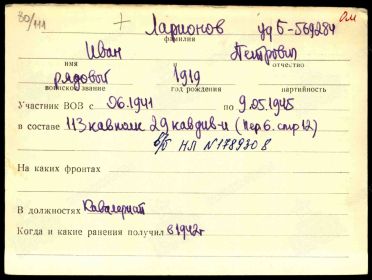 30/111 Ларионов уд Б-569284 Ом
фамилия
Иван Петрович
имя и отчество
рядовой 1919
воинское звание год рождения партийность
Участник ВОВ с 06.1941 по 9.05.1945
в составе 113 кавполк 29 кавдив-и (пер 6. стр 12)
б/б НЛ №178930 8
На каких фронтах
В должностях Кавалерист
Когда и какие ранения получил в 1942г